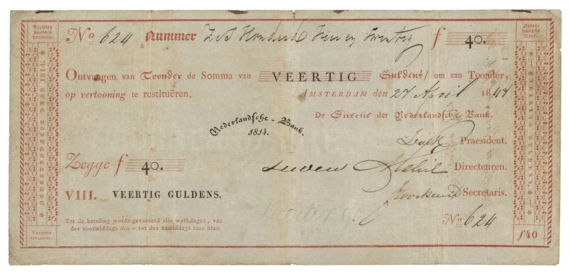 No 624 Nummer Zes Honderd Vier en Twintig f 40.
Ontvangen van Toonder de Somma van VEERTIG Guldens/ om aan Toonder,
op vertooning te restituëren. AMSTERDAM den 27 April 184
De Directie der Nederlandsche Bank.
Nederlandsche - Bank.
1814.
Præsident.
Zegge f 40.
Directeuren.
VIII. VEERTIG GULDENS.
Secretaris.
No 624
Tot de betaling wordt gevaceerd alle werkdagen, van
des voormiddags tien - tot des namiddags twee uren.
f40